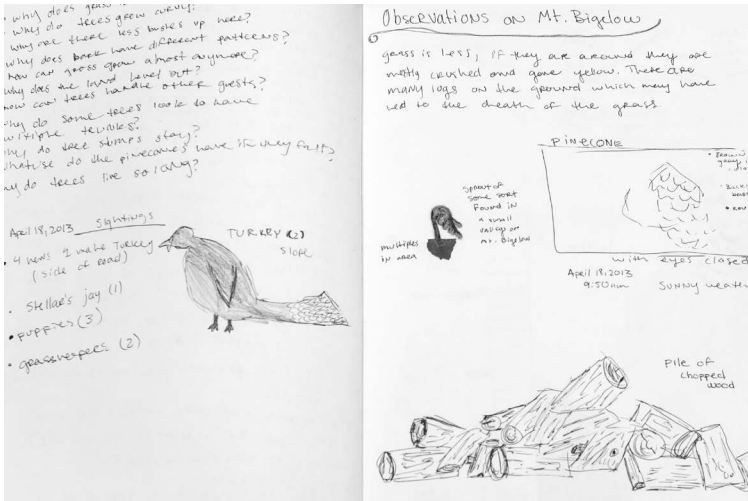 why does grass
why do trees grow curvy?
why are there less bushes up here?
why does bark have different patterns?
how can grass grow almost anymore?
why does the land level out?
how can trees handle other guests?
why do some trees look to have
multiple trunks?
why do tree stumps stay?
do the pinecones have if they fall?
why do trees live so long?
April 18, 2013 Sightings
• 4 hens 1 male Turkey
(side of road)
• Stellar's jay (1)
• puppies (3)
• grasshoppers (2)
TURKEY (2)
slope
Observations on Mt. Bigelow
grass is less, if they are around they are
mostly crushed and gone yellow. There are
many logs on the ground which may have
led to the death of the grass.
sprout of
some sort
found in
a small
valley on
Mt. Bigelow
multiples
in area
PINECONE
• Brown
with eyes closed
April 18, 2013
9:50am SUNNY weath
pile of
chopped
wood